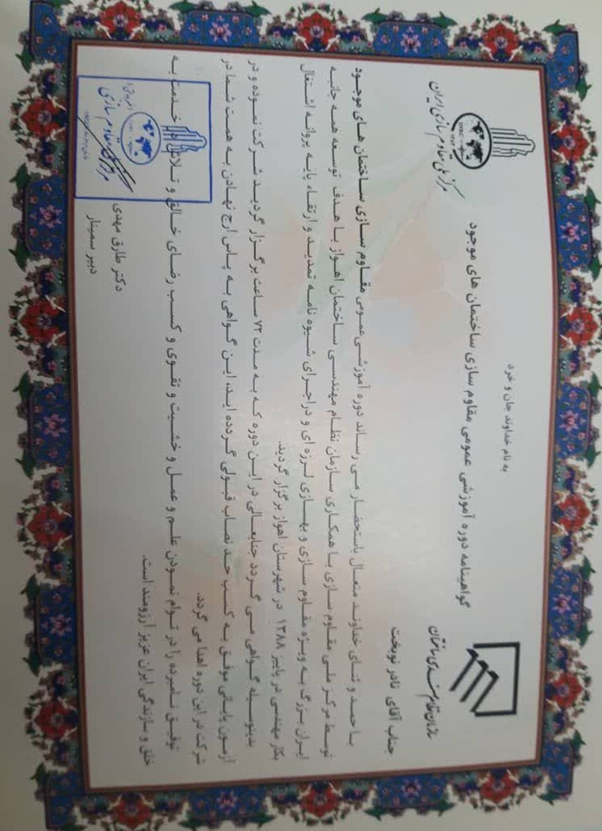 به نام خداوند جان و خرد
مرکز ملی مقاوم سازی ایران
سازمان نظام مهندسی ساختمان
گواهینامه دوره آموزشی عمومی مقاوم سازی ساختمان های موجود
جناب آقای نادر نوبخت
با حمد و ثنای خداوند متعال باستحضار می رساند دوره آموزشی عمومی مقاوم سازی ساختمان های موجود
توسط مرکز ملی مقاوم سازی با همکاری سازمان نظام مهندسی ساختمان اهواز با هدف توسعه همه جانبه
ایران بزرگ به ویژه مقاوم سازی و بهسازی لرزه ای و در اجرای شیوه نامه تمدید و ارتقاء پایه پروانه اشتغال
بکار مهندسی در پاییز ۱۳۸۸ در شهرستان اهواز برگزار گردید.
بدینوسیله گواهی می گردد جنابعالی در این دوره که به مدت ۷۲ ساعت برگزار گردید شرکت نموده و در
آزمون پایانی موفق به کسب حد نصاب قبولی گردیده اید، این گواهی به پاس ارج نهادن به همت شما در
شرکت در این دوره اهدا می گردد.
توفیق نامبرده را در توام نمودن علم و عمل و خشیت و تقوی و کسب رضای خالق و تلاش در خدمت به
خلق و سازندگی ایران عزیز آرزومند است.
دکتر طارق مهدی
دبیر سمینار